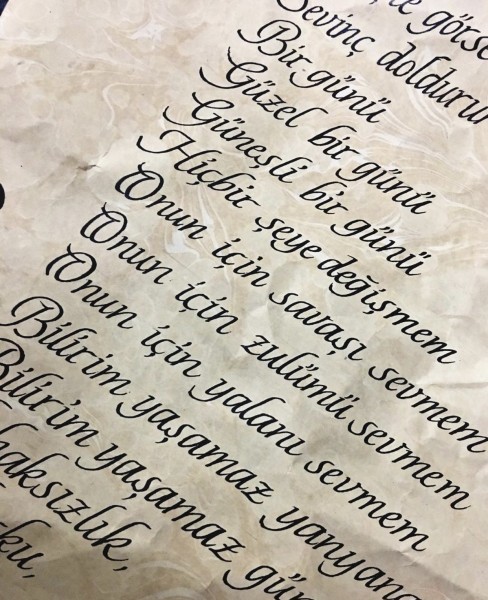 görse
Sevinç doldurur
Bir günü
Güzel bir günü
Güneşli bir günü
Hiçbir şeye değişmem
Onun için savaşı sevmem
Onun için zulümü sevmem
Onun için yalanı sevmem
Bilirim yaşamaz yanyana
Bilirim yaşamaz gün
haksızlık,